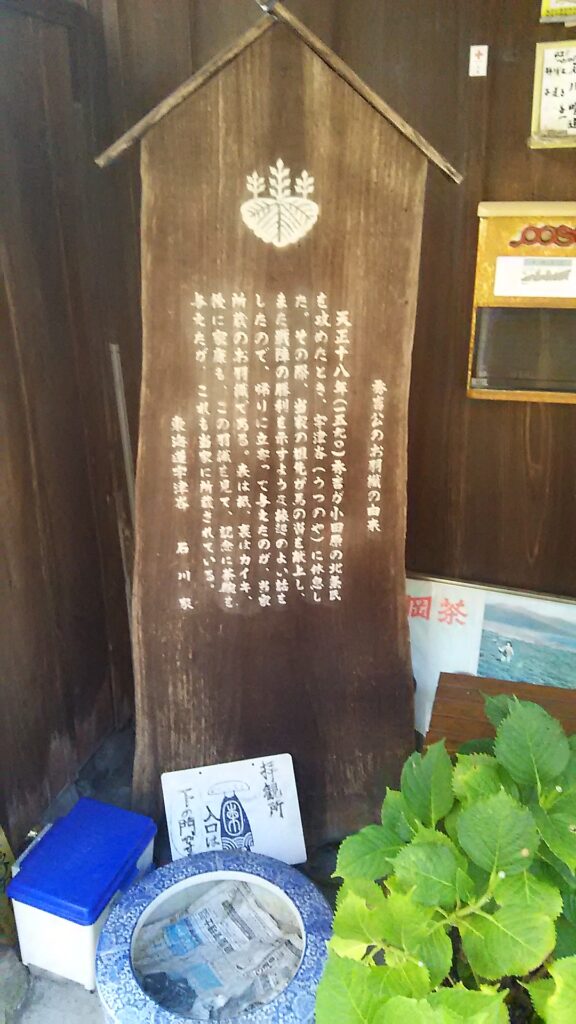 秀吉公のお羽織の由来
天正十八年(一五九〇)秀吉が小田原の北条氏
を攻めたとき、宇津谷(うつのや)に休息し
た。その際、当家の祖先が馬の沓を献上し、
また戦陣の勝利を示すような縁起のよい話を
したので、帰りに立寄って与えたのが、当家
所蔵のお羽織である。表は紙、裏はカイキ、
後に家康も、この羽織を見て、記念に茶碗を
与えたが、これも当家に所蔵されている。
東海道宇津谷 石川家
岡茶
拝観所
入口は
下の門